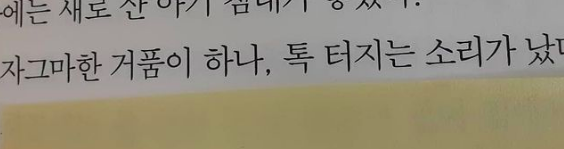 에는 새로 산 아기 침대가
자그마한 거품이 하나, 톡 터지는 소리가 났다